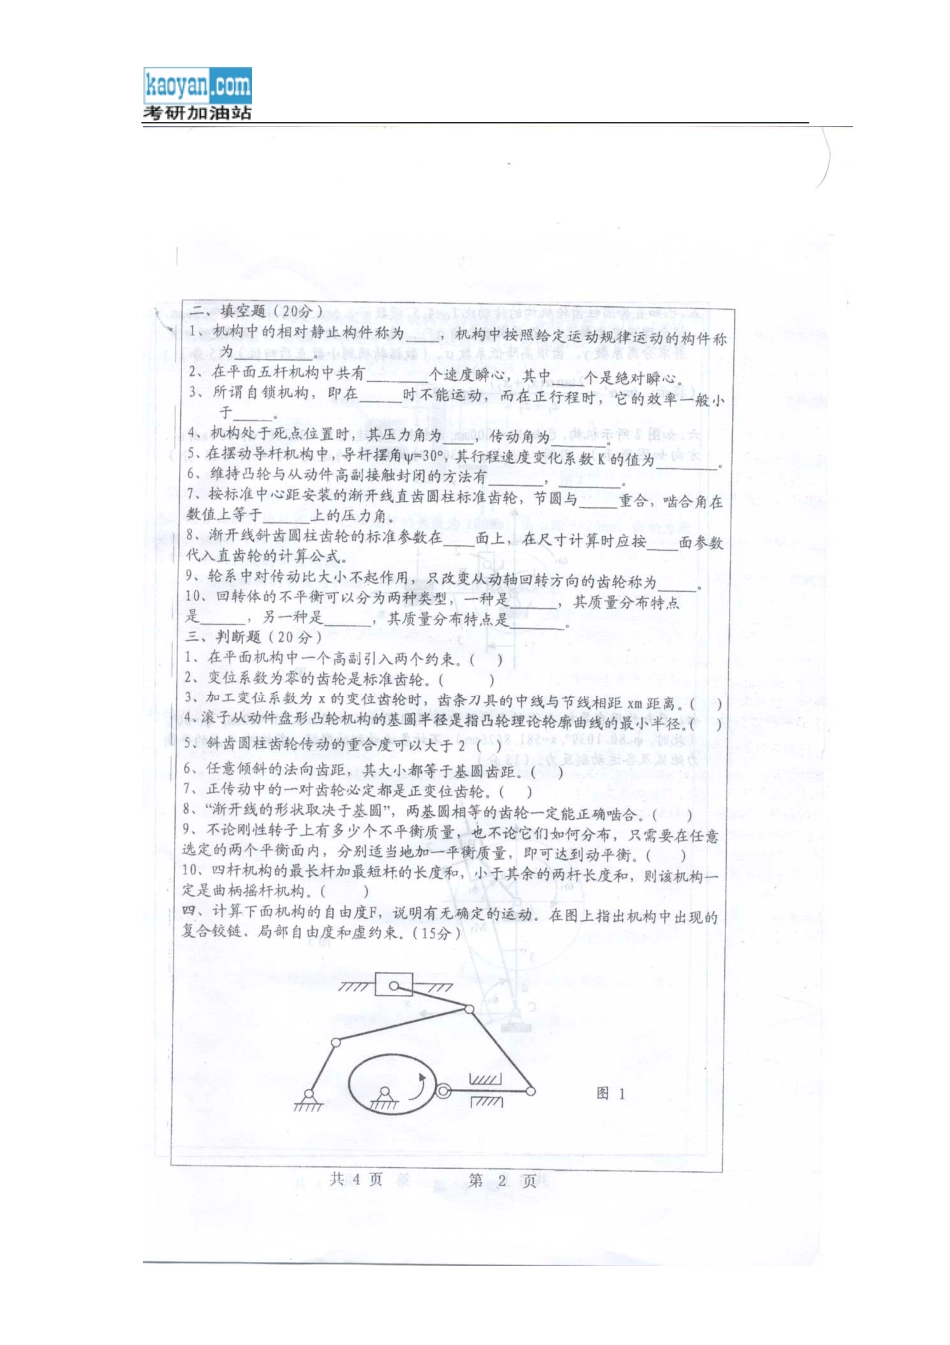 kaoyan.com
考研加油站
二、填空题(20分)
1、机构中的相对静止构件称为____,机构中按照给定运动规律运动的构件称
为________。
2、在平面五杆机构中共有______个速度瞬心,其中___个是绝对瞬心。
3、所谓自锁机构,即在____时不能运动,而在正行程时,它的效率一般小
于____。
4、机构处于死点位置时,其压力角为___,传动角为______。
5、在摆动导杆机构中,导杆摆角ψ=30°,其行程速度变化系数K的值为______。
6、维持凸轮与从动件高副接触封闭的方法有______,________。
7、按标准中心距安装的渐开线直齿圆柱标准齿轮,节圆与____重合,啮合角在
数值上等于_____上的压力角。
8、渐开线斜齿圆柱齿轮的标准参数在___面上,在尺寸计算时应按___面参数
代入直齿轮的计算公式。
9、轮系中对传动比大小不起作用,只改变从动轴回转方向的齿轮称为____。
10、回转体的不平衡可以分为两种类型,一种是_____,其质量分布特点
是_____,另一种是_____,其质量分布特点是______。
三、判断题(20分)
1、在平面机构中一个高副引入两个约束。( )
2、变位系数为零的齿轮是标准齿轮。( )
3、加工变位系数为x的变位齿轮时,齿条刀具的中线与节线相距xm距离。( )
4、滚子从动件盘形凸轮机构的基圆半径是指凸轮理论轮廓曲线的最小半径。( )
5、斜齿圆柱齿轮传动的重合度可以大于2 ( )
6、任意倾斜的法向齿距,其大小都等于基圆齿距。( )
7、正传动中的一对齿轮必定都是正变位齿轮。( )
8、“渐开线的形状取决于基圆”,两基圆相等的齿轮一定能正确啮合。( )
9、不论刚性转子上有多少个不平衡质量,也不论它们如何分布,只需要在任意
选定的两个平衡面内,分别适当地加一平衡质量,即可达到动平衡。( )
10、四杆机构的最长杆加最短杆的长度和,小于其余的两杆长度和,则该机构一
定是曲柄摇杆机构。( )
四、计算下面机构的自由度F,说明有无确定的运动。在图上指出机构中出现的
复合铰链、局部自由度和虚约束。(15分)
图 1
共 4 页 第 2 页